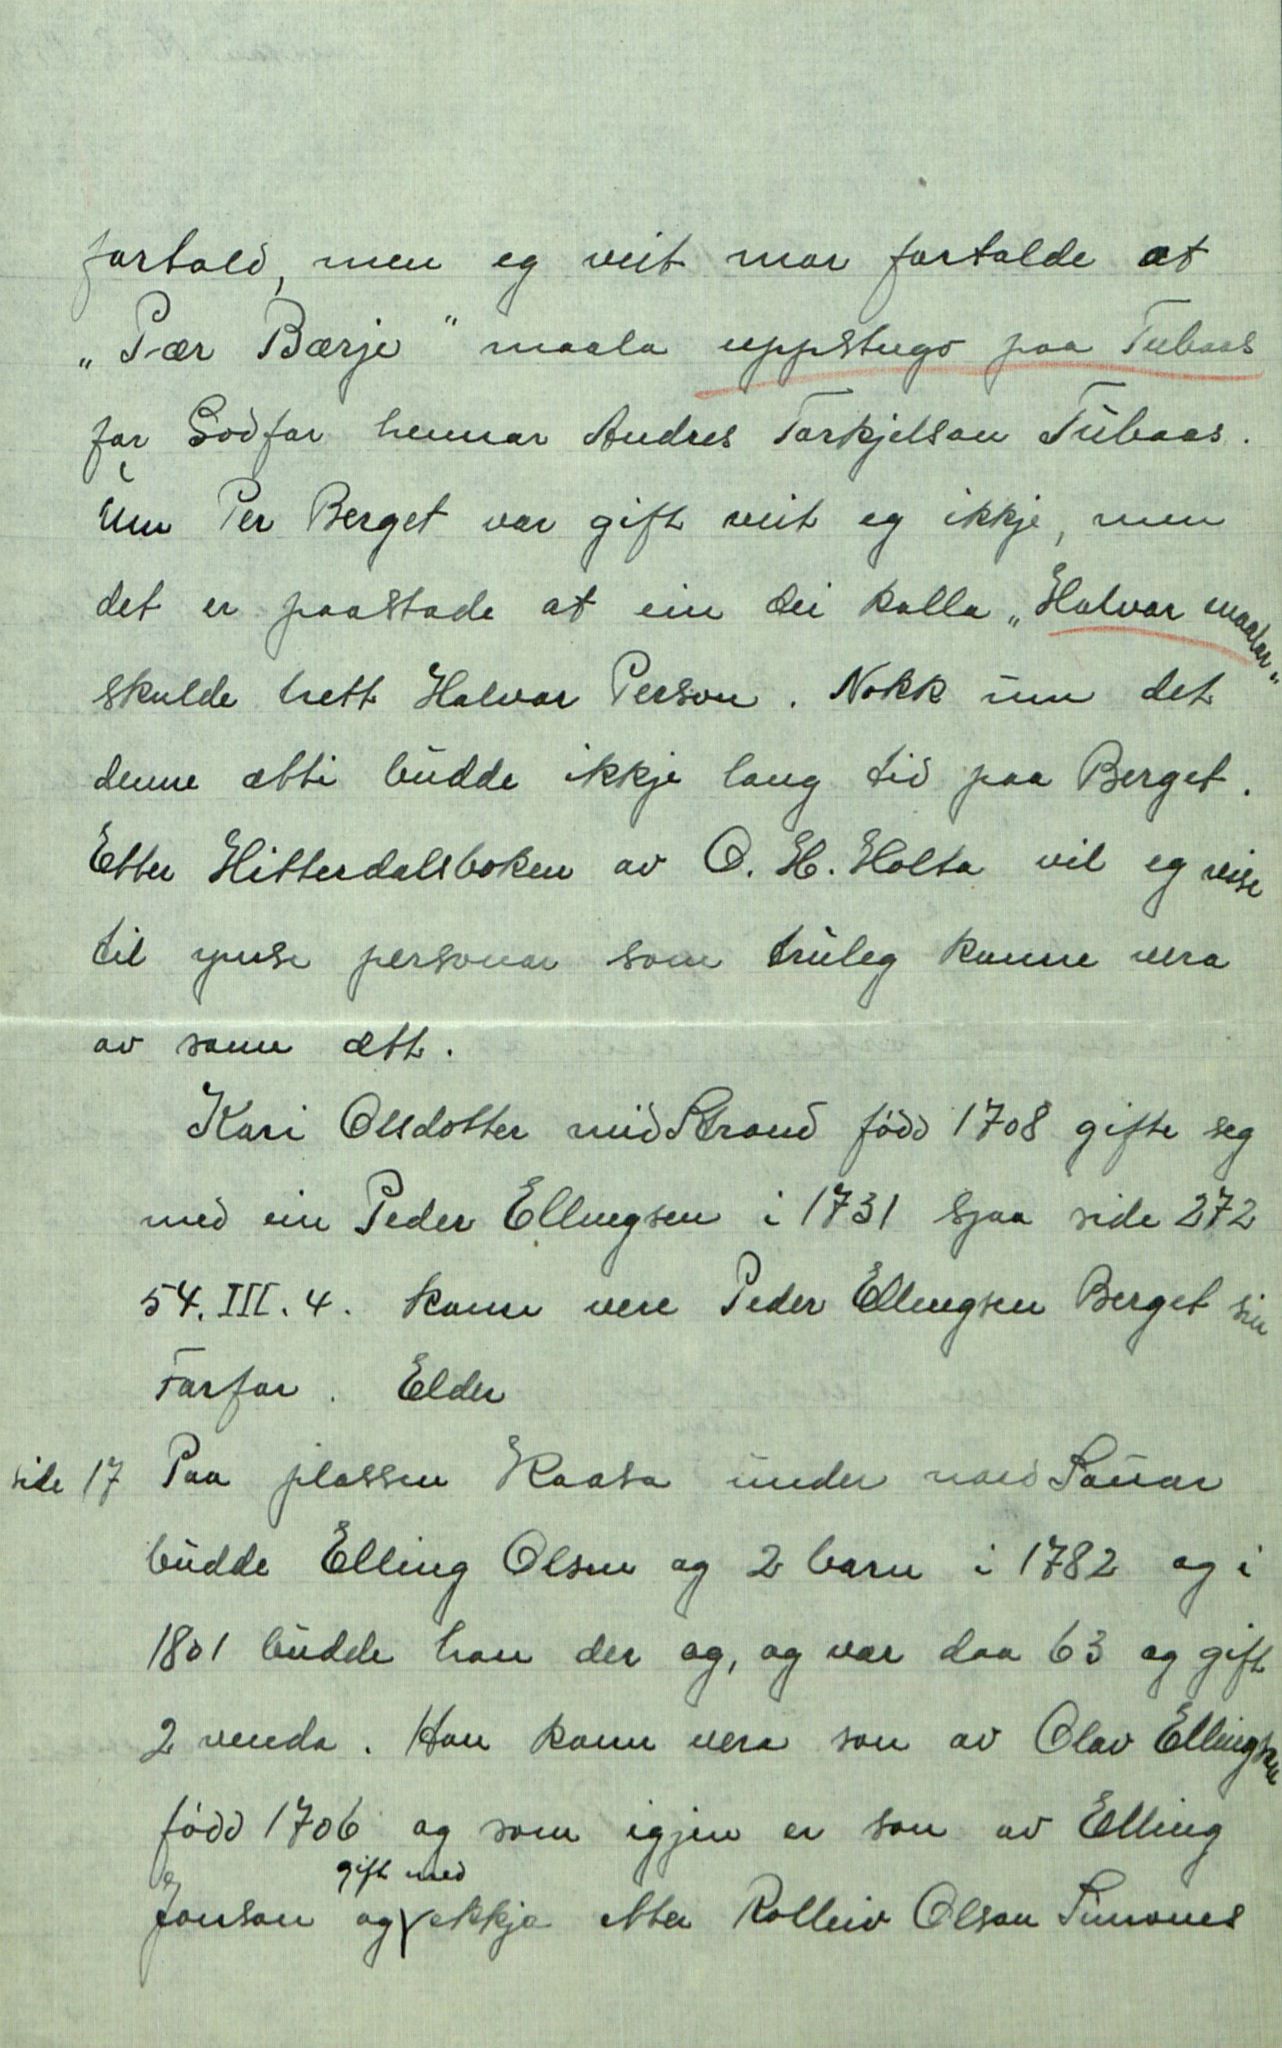 fortald, men eg veit mor fortalde at
„Pær Bærje" maala uppstugo paa Tubaas
for Godfar hennar Andres Torkjelson Tubaas.
Um Per Berget var gift veit eg ikkje, men
det er paastade at ein dei kalla „Halvor maalar"
skulde hett Halvor Person. Nokk um det
denne ætti budde ikkje lang tid paa Berget.
Etter Hitterdalsboken av O. H. Holta vil eg vise
til ymse personar som truleg kunne vera
av same ætt.
Kari Olsdotter nid Strand född 1708 gifte seg
med ein Peder Ellingsen i 1731 sjaa side 272
54. III. 4. kann vere Peder Ellingsen Berget sin
Farfar. Elder
side 17 Paa plassen Kaasa under nord Sauar
budde Elling Olsen og 2 barn i 1782 og i
1801 budde han der og, og var daa 63 og gift
2 venda. Han kann vera son av Olav Ellingsen
född 1706 og som igjen er son av Elling
gift med
Jonson og ekkja etter Rolleiv Olson Simones